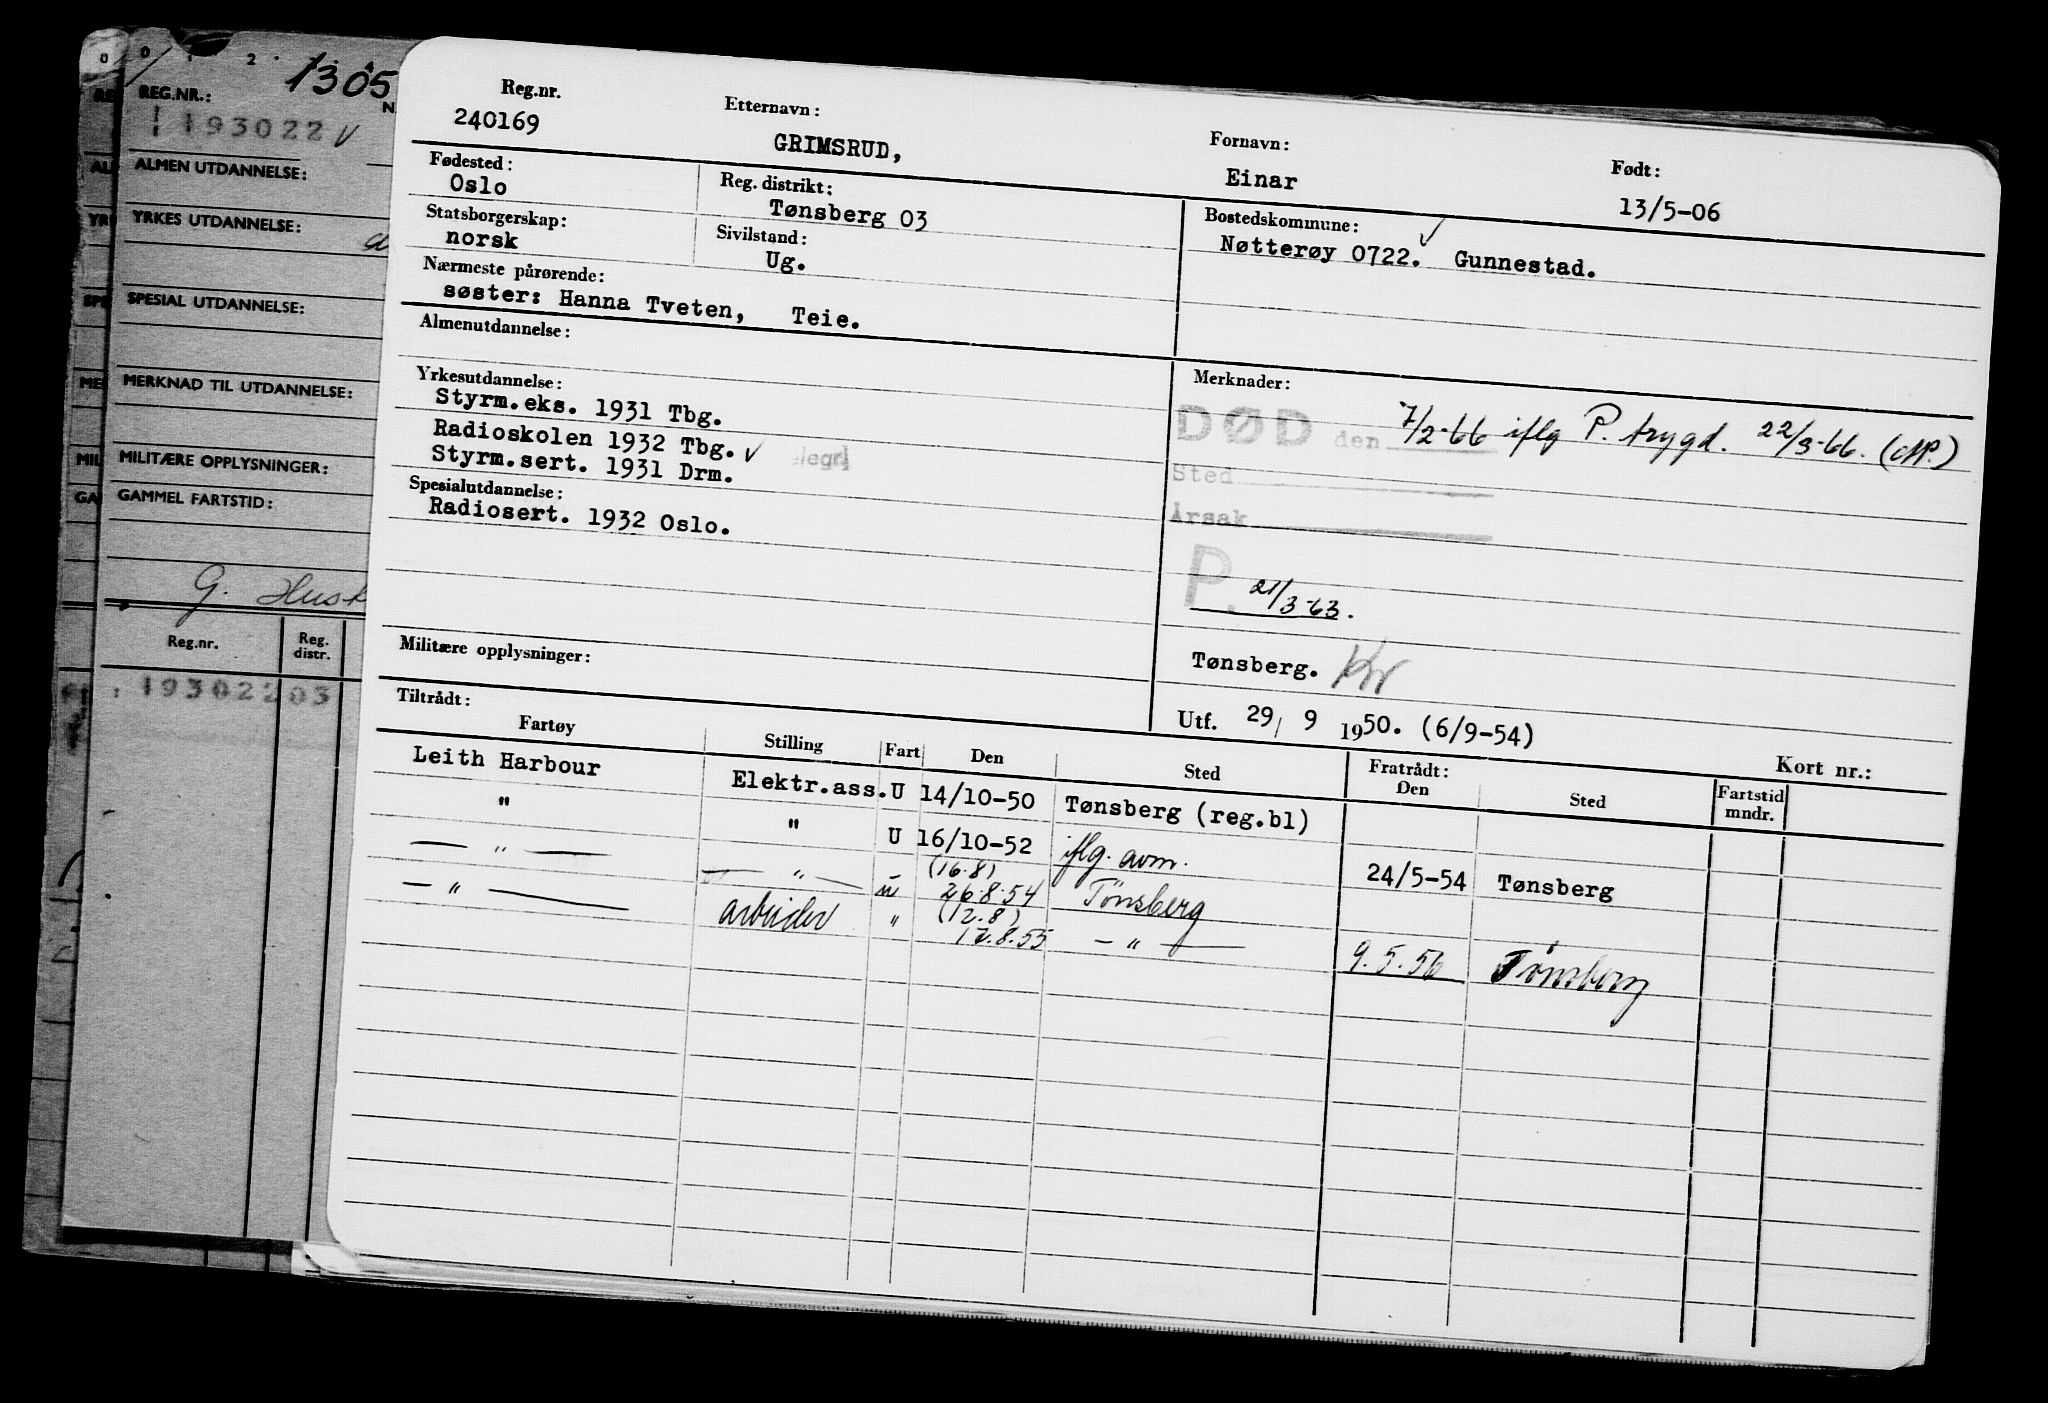 0 0 1 2
1305
REG.NR.:
193022 V
ALMEN UTDANNELSE:
YRKES UTDANNELSE:
SPESIAL UTDANNELSE:
MERKNAD TIL UTDANNELSE:
MILITÆRE OPPLYSNINGER:
GAMMEL FARTSTID:
G. Husk
Reg.nr. Reg. distr.
193022 03
Reg.nr. Etternavn: Fornavn: Født:
240169 GRIMSRUD, Einar 13/5-06
Fødested: Reg. distrikt: Bostedskommune:
Oslo Tønsberg 03 Nøtterøy 0722. Gunnestad.
Statsborgerskap: Sivilstand:
norsk Ug.
Nærmeste pårørende:
søster: Hanna Tveten, Teie.
Almenutdannelse:
Yrkesutdannelse:
Styrm.eks. 1931 Tbg.
Radioskolen 1932 Tbg. V
Styrm.sert. 1931 Drm.
Spesialutdannelse:
Radiosert. 1932 Oslo.
Militære opplysninger:
Merknader:
DØD den 7/2-66 iflg P. trygd. 22/3-66. (MP.)
Sted
Årsak
P. 21/3-63.
Tønsberg. Kr
Utf. 29/ 9 1950. (6/9-54)
Tiltrådt: Fratrådt: Kort nr.:
Fartøy Stilling Fart Den Sted Den Sted Fartstid mndr.
Leith Harbour Elektr.ass. U 14/10-50 Tønsberg (reg.bl)
" " U 16/10-52 iflg. avm. 24/5-54 Tønsberg
— " — — " — u (16.8) 26.8.54 Tønsberg
— " — arbeider " (12.8) 17.8.55 — " — 9.5.56 Tønsberg